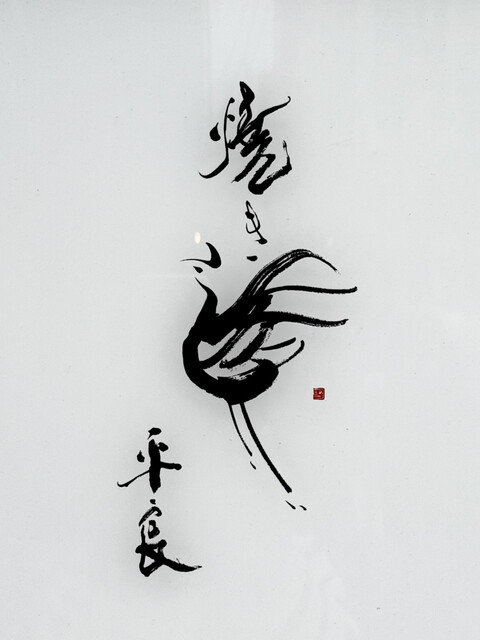 焼き鳥
平良